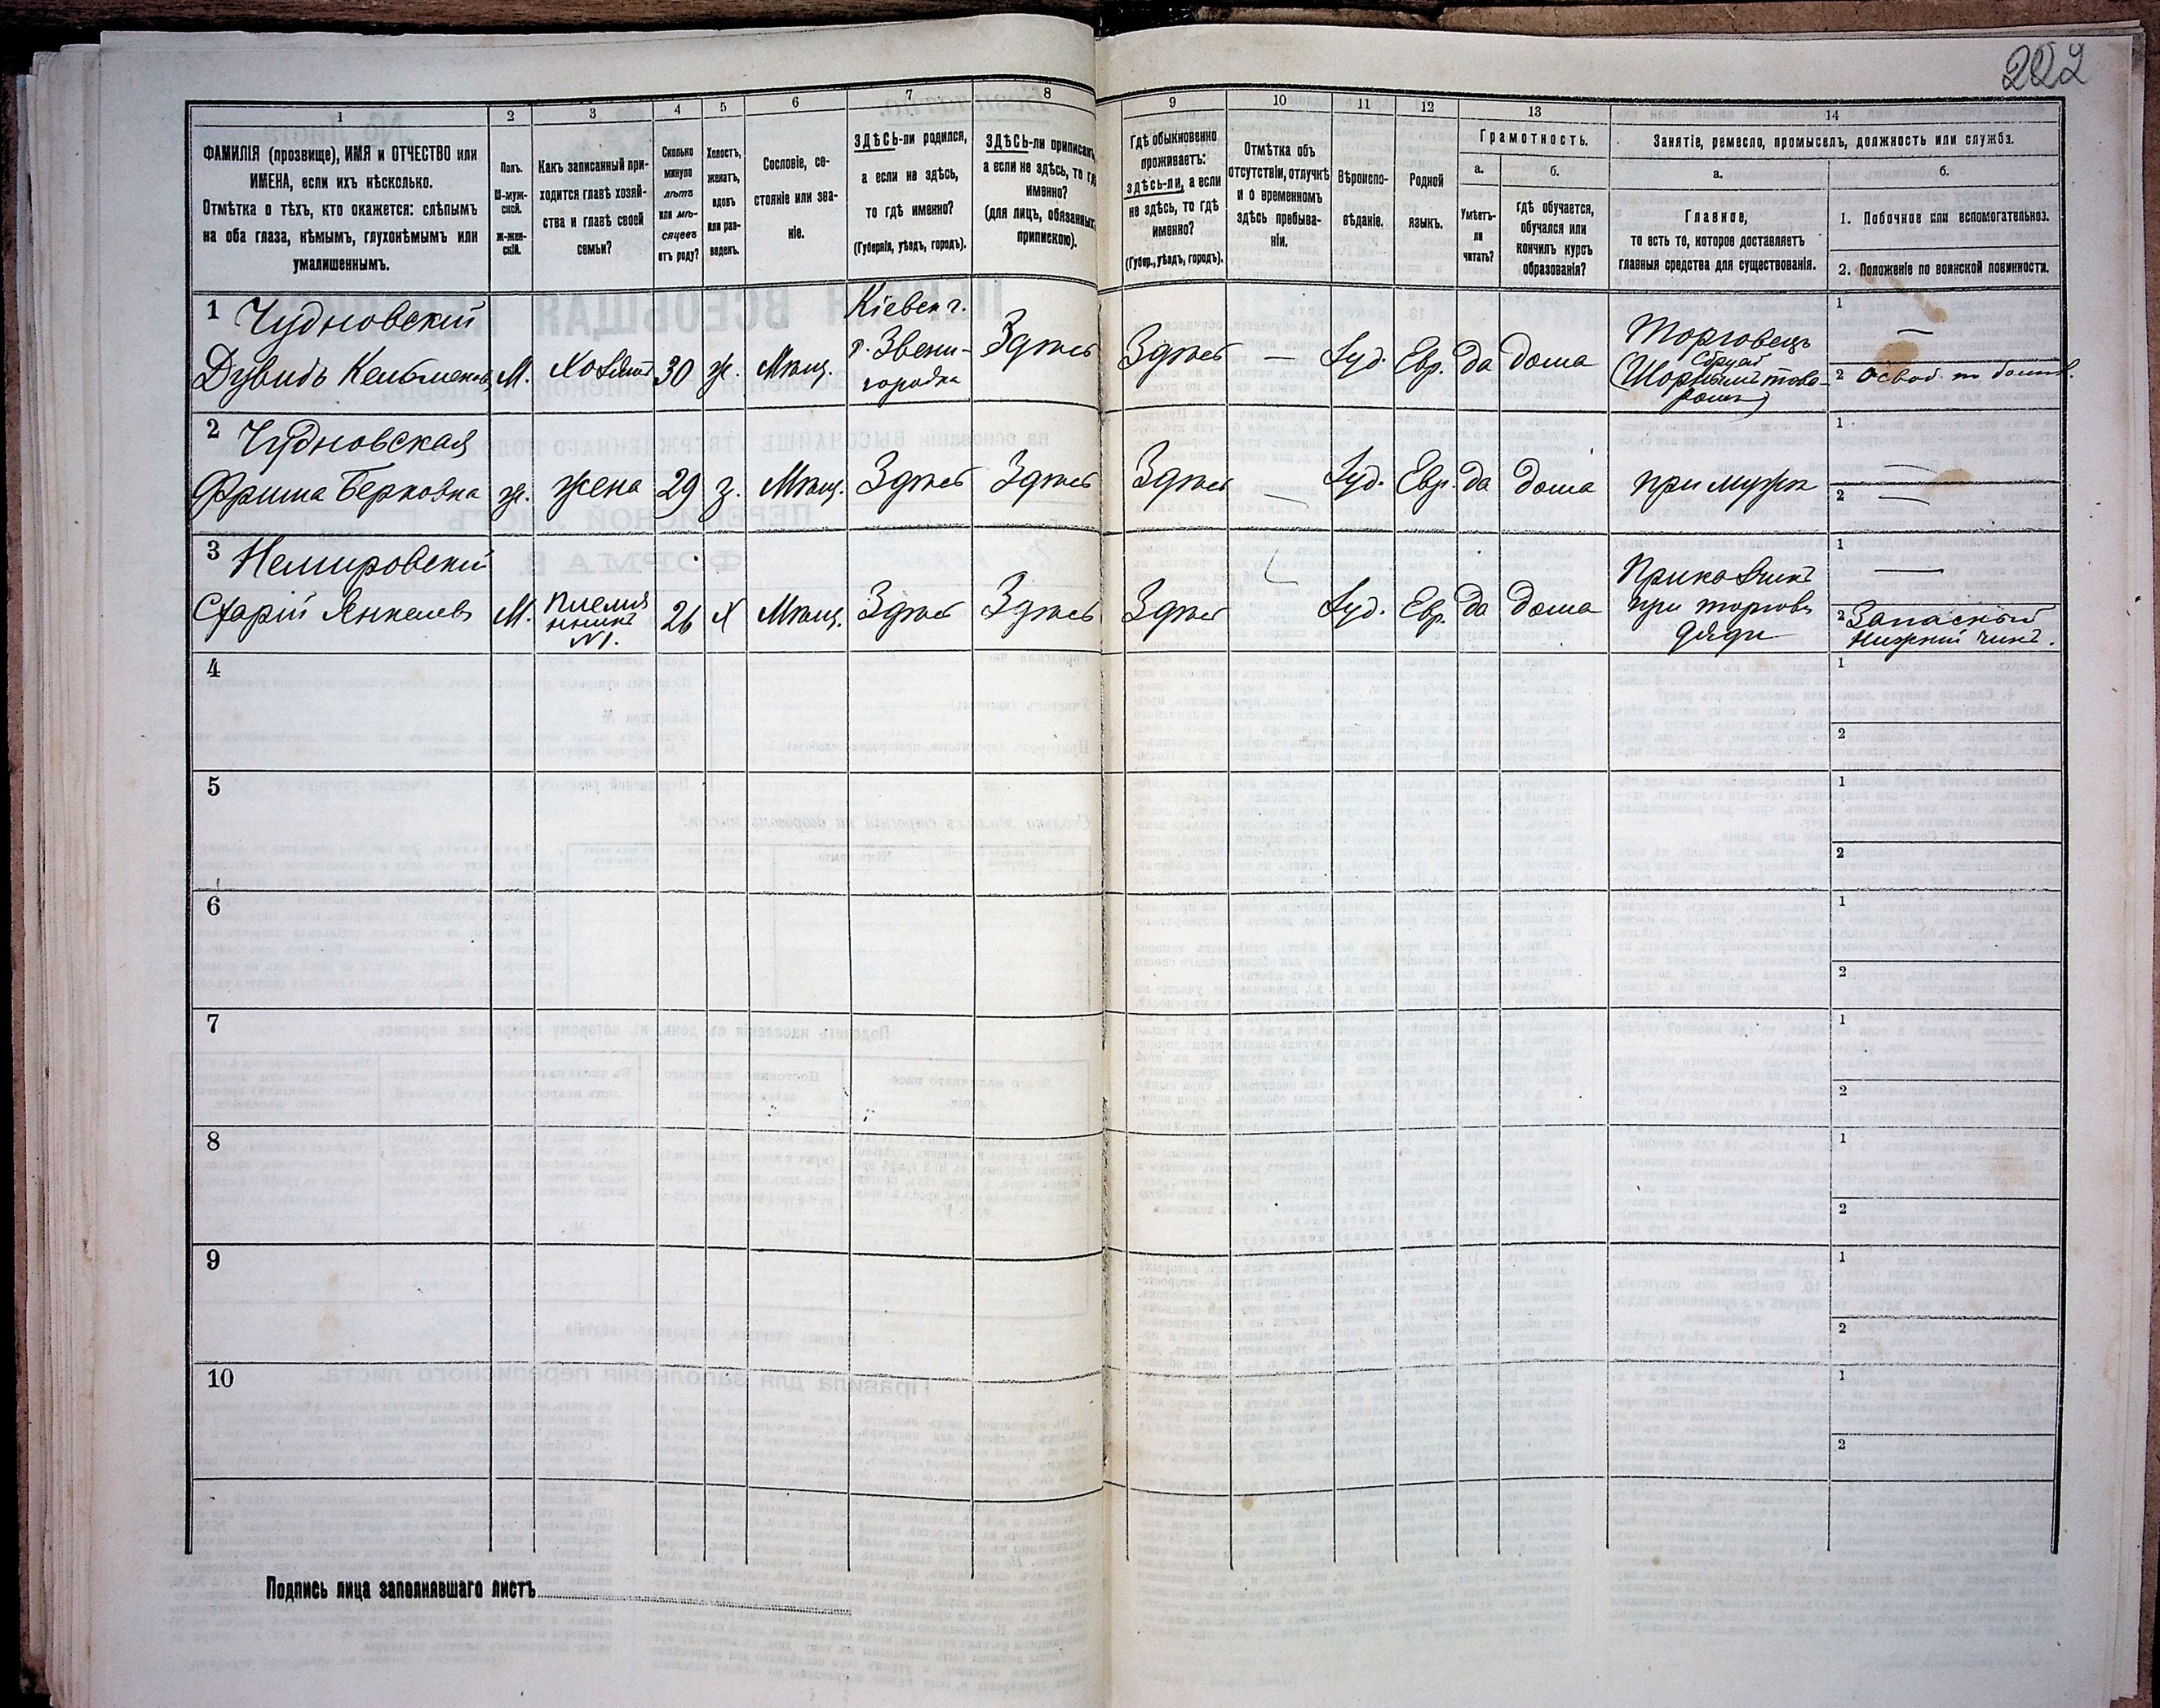 222
1
2
3
4
5
6
7
8
9
10
11
12
13
14
ФАМИЛІЯ (прозвище), ИМЯ и ОТЧЕСТВО или
ИМЕНА, если ихъ нѣсколько.
Отмѣтка о тѣхъ, кто окажется: слѣпымъ
на оба глаза, нѣмымъ, глухонѣмымъ или
умалишеннымъ.
Полъ.
М-муж-
ской.
Ж-жен-
скій.
Какъ записанный при-
ходится главѣ хозяй-
ства и главѣ своей
семьи?
Сколько
минуло
лѣтъ
или мѣ-
сяцевъ
отъ роду?
Холостъ,
женатъ,
вдовъ
или раз-
веденъ.
Сословіе, со-
стояніе или зва-
ніе.
ЗДѢСЬ-ли родился,
а если не здѣсь,
то гдѣ именно?
(Губернія, уѣздъ, городъ).
ЗДѢСЬ-ли приписанъ,
а если не здѣсь, то гдѣ
именно?
(для лицъ, обязанныхъ
припискою).
Гдѣ обыкновенно
проживаетъ:
здѣсь-ли, а если
не здѣсь, то гдѣ
именно?
(Губер., уѣздъ, городъ).
Отмѣтка объ
отсутствіи, отлучкѣ
и о временномъ
здѣсь пребыва-
ніи.
Вѣроиспо-
вѣданіе.
Родной
языкъ.
Грамотность.
а.
Умѣетъ-
ли
читать?
б.
Гдѣ обучается,
обучался или
кончилъ курсъ
образованія?
Занятіе, ремесло, промыселъ, должность или служба.
а.
Главное,
то есть то, которое доставляетъ
главныя средства для существованія.
б.
1. Побочное или вспомогательное.
2. Положеніе по воинской повинности.
1 Чудновскій
Дувидъ Кельменовъ М. Хозяинъ 30 ж. Мѣщ. Кіевск г.
г. Звени-
городка
Здѣсь Здѣсь — Іуд. Евр. да дома Торговецъ
Сбруей
(Шорнымъ това-
ромъ)
1 —
2 Освоб.
2 Чудновская
Фрима Берковна ж. жена 29 з. Мѣщ. Здѣсь Здѣсь Здѣсь — Іуд. Евр. да дома при мужѣ
1 —
2 —
3 Немировскій
Янкелевъ М. племян
никъ
№1. 26 Х Мѣщ. Здѣсь Здѣсь Здѣсь Іуд. Евр. да дома Приказчикъ
при торговлѣ
дяди
1 —
2 Запасный
Нижній чинъ.
4
1
2
5
1
2
6
1
2
7
1
2
8
1
2
9
1
2
10
1
2
Подпись лица заполнявшаго листъ